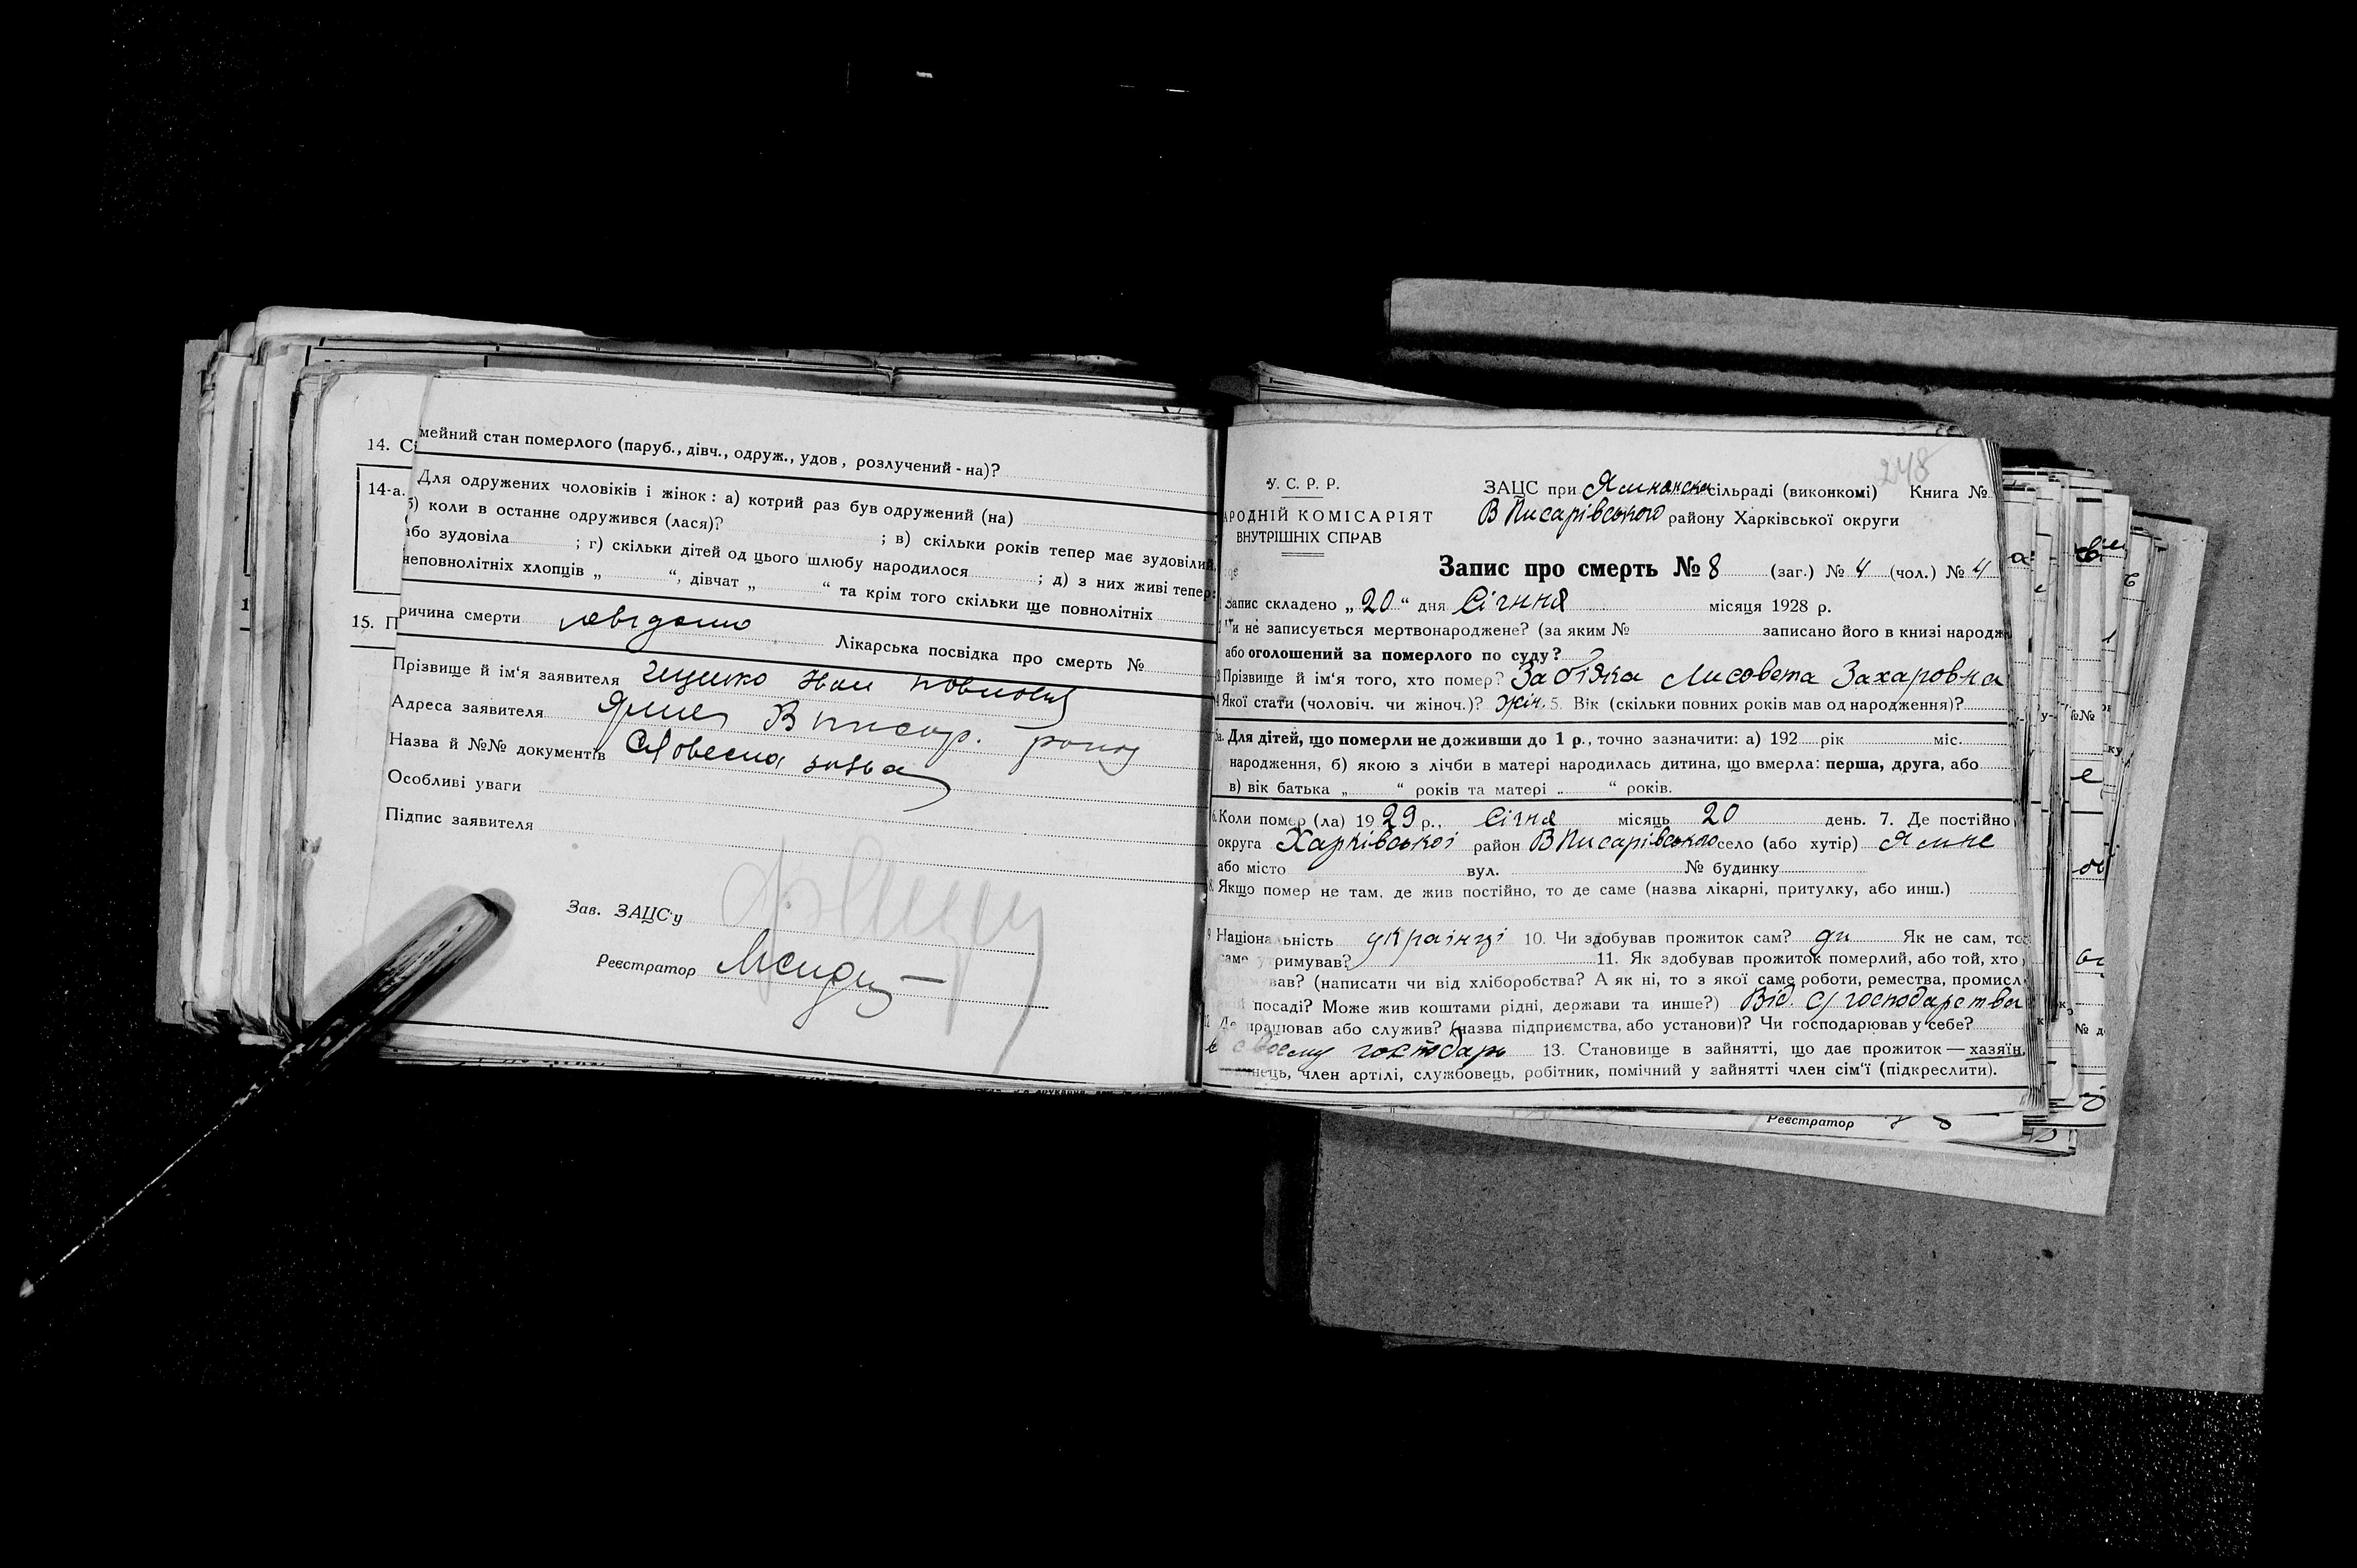 14. С
мейний стан померлого (паруб., дівч., одруж., удов, розлучений-на)?
14-а.
Для одружених чоловіків і жінок: а) котрий раз був одружений (на)
б) коли в останнє одружився (лася)? ; в) скільки років тепер має зудовілий,
або зудовіла ; г) скільки дітей од цього шлюбу народилося ; д) з них живі тепер:
неповнолітніх хлопців „ “, дівчат „ “ та крім того скільки ще повнолітніх
15. П
ричина смерти Лікарська посвідка про смерть №
Прізвище й ім'я заявителя
Адреса заявителя В Писар.
Назва й №№ документів Словесна заява
Особливі уваги
Підпис заявителя
Зав. ЗАЦС'у
Реєстратор
248
У. С. Р. Р.
АРОДНІЙ КОМІСАРІЯТ
ВНУТРІШНІХ СПРАВ
ЗАЦС при сільраді (виконкомі) Книга №
В Писарівського району Харківської округи
Запис про смерть № 8 (заг.) № 4 (чол.) № 4
Запис складено „ 20 “ дня Січння місяця 1928 р.
и не записується мертвонароджене? (за яким № записано його в книзі народж
або оголошений за померлого по суду?
3 Прізвище й ім'я того, хто помер? Забіяка Лисовета Захаровна
4 Якої стати (чоловіч. чи жіноч.)? жін. 5. Вік (скільки повних років мав од народження)?
5а. Для дітей, що померли не доживши до 1 р., точно зазначити: а) 192 рік міс.
народження, б) якою з лічби в матері народилась дитина, що вмерла: перша, друга, або
в) вік батька „ “ років та матері „ “ років.
6. Коли помер (ла) 1929 р., Січня місяць 20 день. 7. Де постійно
округа Харківської район В Писарівського село (або хутір) Ямне
або місто вул. № будинку
8. Якщо помер не там, де жив постійно, то де саме (назва лікарні, притулку, або инш.)
9 Національність українці 10. Чи здобував прожиток сам? Як не сам, то
саме утримував? 11. Як здобував прожиток померлий, або той, хто
вав? (написати чи від хліборобства? А як ні, то з якої саме роботи, ремества, промисл
й посаді? Може жив коштами рідні, держави та инше?) Від. С/господарства
12 Де працював або служив? (назва підприємства, або установи)? Чи господарював у себе?
своему господар 13. Становище в зайнятті, що дає прожиток — хазяїн,
нець, член артілі, службовець, робітник, помічний у зайнятті член сім'ї (підкреслити).
Реєстратор